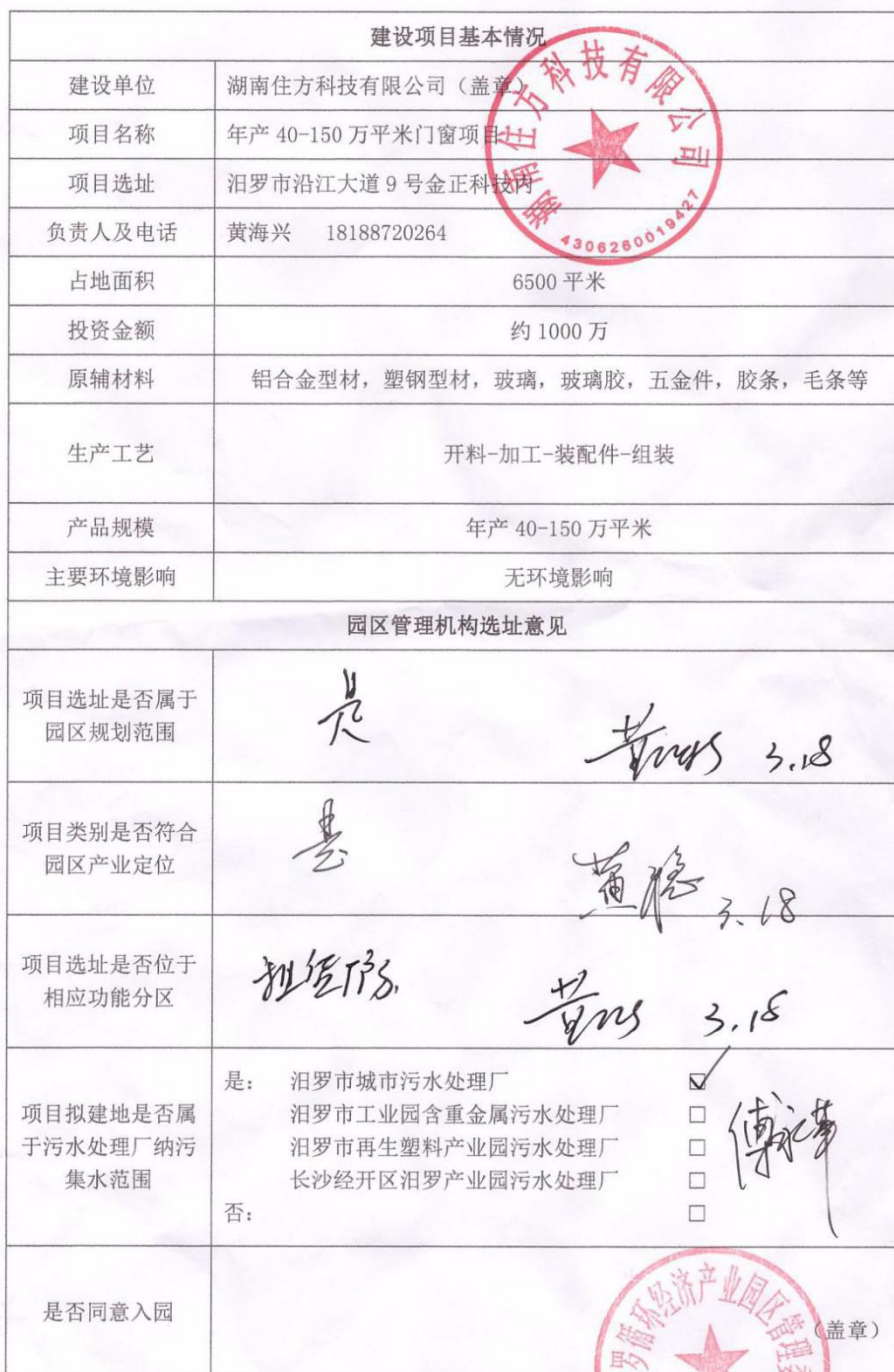 建设项目基本情况
建设单位 湖南住方科技有限公司（盖章）
项目名称 年产 40-150 万平米门窗项目
项目选址 汨罗市沿江大道 9 号金正科技内
负责人及电话 黄海兴 18188720264
占地面积 6500 平米
投资金额 约 1000 万
原辅材料 铝合金型材，塑钢型材，玻璃，玻璃胶，五金件，胶条，毛条等
生产工艺 开料-加工-装配件-组装
产品规模 年产 40-150 万平米
主要环境影响 无环境影响
湖南住方科技有限公司
4306260019427
园区管理机构选址意见
项目选址是否属于
园区规划范围
是 3.18
项目类别是否符合
园区产业定位
是 3.18
项目选址是否位于
相应功能分区
租赁厂房 3.18
项目拟建地是否属
于污水处理厂纳污
集水范围
是： 汨罗市城市污水处理厂 ☑
汨罗市工业园含重金属污水处理厂 □
汨罗市再生塑料产业园污水处理厂 □
长沙经开区汨罗产业园污水处理厂 □
否： □
是否同意入园 （盖章）
罗循环经济产业园区管理